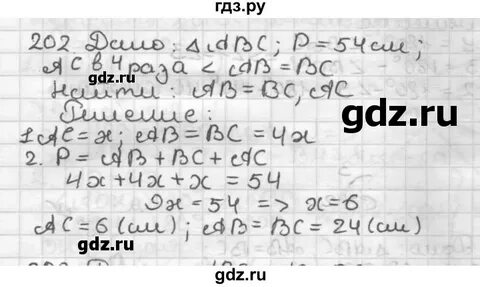 гдз.ру
202 Дано: △ABC; P = 54 см;
AC в 4 раза < AB = BC
Найти: AB = BC, AC
Решение:
1. AC = x; AB = BC = 4x
2. P = AB + BC + AC
4x + 4x + x = 54
9x = 54 => x = 6
AC = 6 (см); AB = BC = 24 (см)
gdz.ru
gdz.ru
gdz.ru
gdz.ru